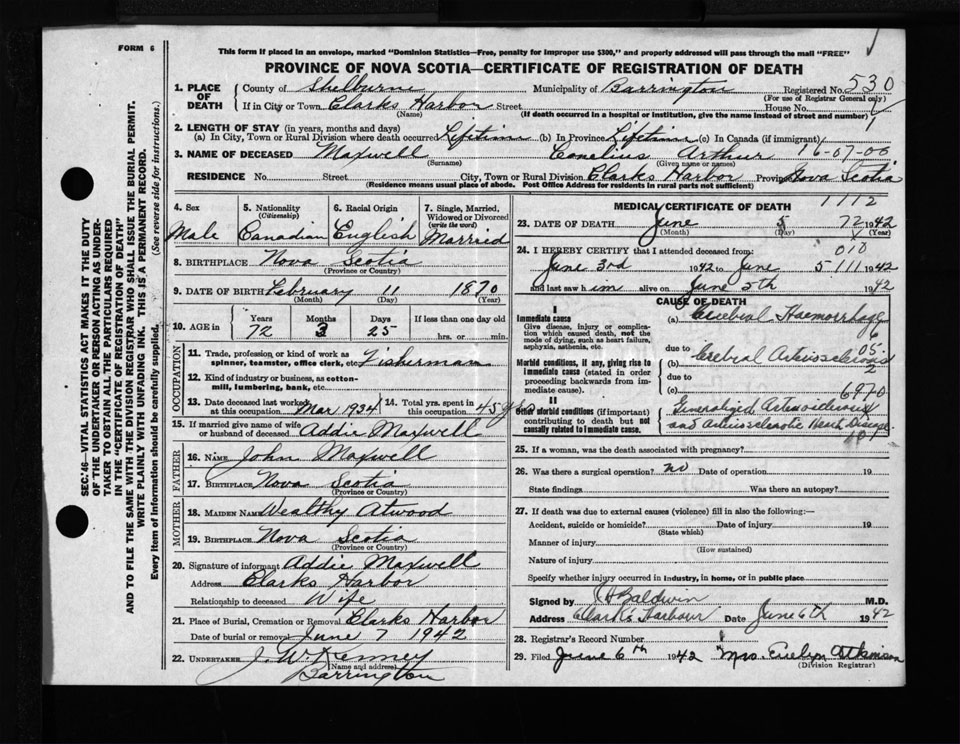 FORM 6
This form if placed in an envelope, marked "Dominion Statistics—Free, penalty for improper use $300," and properly addressed will pass through the mail "FREE"
PROVINCE OF NOVA SCOTIA—CERTIFICATE OF REGISTRATION OF DEATH
SEC. 46—VITAL STATISTICS ACT MAKES IT THE DUTY
OF THE UNDERTAKER OR PERSON ACTING AS UNDER-
TAKER TO OBTAIN ALL THE PARTICULARS REQUIRED
IN THE "CERTIFICATE OF REGISTRATION OF DEATH"
AND TO FILE THE SAME WITH THE DIVISION REGISTRAR WHO SHALL ISSUE THE BURIAL PERMIT.
WRITE PLAINLY WITH UNFADING INK. THIS IS A PERMANENT RECORD.
Every item of Information should be carefully supplied. (See reverse side for instructions.)
1. PLACE OF DEATH
County of Shelburne Municipality of Barrington Registered No. 530
(For use of Registrar General only)
If in City or Town Clarks Harbor Street House No.
(Name) (If death occurred in a hospital or institution, give the name instead of street and number)
2. LENGTH OF STAY (in years, months and days)
(a) In City, Town or Rural Division where death occurred Lifetime (b) In Province Lifetime (c) In Canada (if immigrant)
3. NAME OF DECEASED Maxwell Conelius Arthur 16-07-00
(Surname) (Given name or names)
RESIDENCE No. Street City, Town or Rural Division Clarks Harbor Province Nova Scotia
(Residence means usual place of abode. Post Office Address for residents in rural parts not sufficient)
4. Sex 5. Nationality (Citizenship) 6. Racial Origin 7. Single, Married, Widowed or Divorced (write the word)
Male Canadian English Married
8. BIRTHPLACE Nova Scotia
(Province or Country)
9. DATE OF BIRTH February 11 1870
(Month) (Day) (Year)
10. AGE in Years Months Days If less than one day old
72 3 25 hrs. or min.
OCCUPATION
11. Trade, profession or kind of work as spinner, teamster, office clerk, etc. Fisherman
12. Kind of industry or business, as cotton-mill, lumbering, bank, etc.
13. Date deceased last worked at this occupation Mar 1934 14. Total yrs. spent in this occupation 45 yrs
15. If married give name of wife or husband of deceased Addie Maxwell
FATHER
16. NAME John Maxwell
17. BIRTHPLACE Nova Scotia
(Province or Country)
MOTHER
18. MAIDEN NAME Wealthy Atwood
19. BIRTHPLACE Nova Scotia
(Province or Country)
20. Signature of informant Addie Maxwell
Address Clarks Harbor
Relationship to deceased Wife
21. Place of Burial, Cremation or Removal Clarks Harbor
Date of burial or removal June 7 1942
22. UNDERTAKER J. W. Kenney
(Name and address)
Barrington
1112
MEDICAL CERTIFICATE OF DEATH
23. DATE OF DEATH June 5 72 1942
(Month) (Day) (Year)
24. I HEREBY CERTIFY that I attended deceased from: 010
June 3rd 1942 to June 5 111 1942
and last saw him alive on June 5th 1942
CAUSE OF DEATH
I
Immediate cause
Give disease, injury or complication which caused death, not the mode of dying, such as heart failure, asphyxia, asthenia, etc.
(a) Cerebral Haemorrhage
due to
Morbid conditions, if any, giving rise to immediate cause (stated in order proceeding backwards from immediate cause).
(b) Cerebral Arteriosclerosis
05
2
due to
(c) 6970
II
Other morbid conditions (if important) contributing to death but not causally related to immediate cause.
Generalized
and Arteriosclerotic Heart Disease
10
25. If a woman, was the death associated with pregnancy?
26. Was there a surgical operation? no Date of operation 19
State findings Was there an autopsy?
27. If death was due to external causes (violence) fill in also the following:—
Accident, suicide or homicide? Date of injury 19
(State which)
Manner of injury
(How sustained)
Nature of injury
Specify whether injury occurred in industry, in home, or in public place
Signed by Baldwin M.D.
Address Clark's Harbour Date June 6th 1942
28. Registrar's Record Number
29. Filed June 6th 1942 Mrs. Evelyn Atkinson
(Division Registrar)